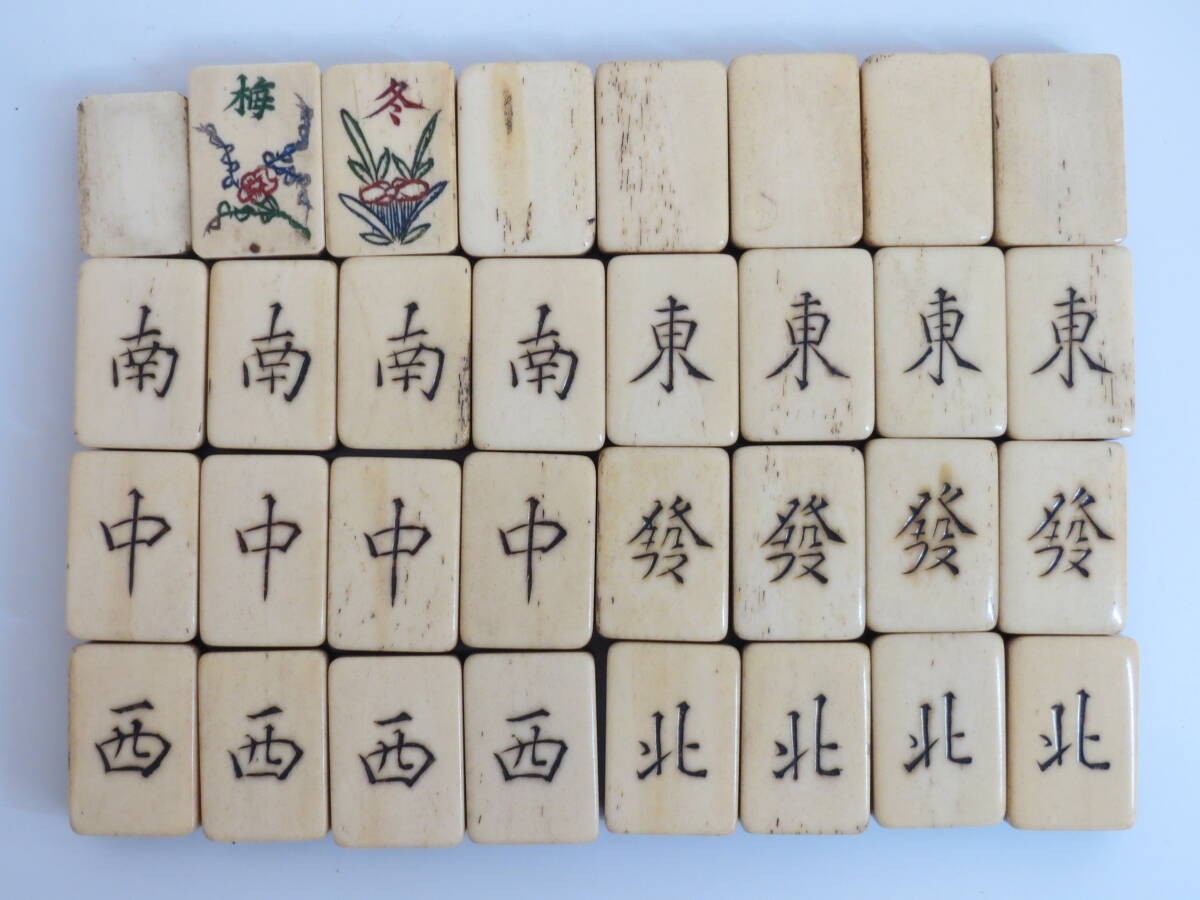 梅 冬
南 南 南 南 東 東 東 東
中 中 中 中 發 發 發 發
西 西 西 西 北 北 北 北